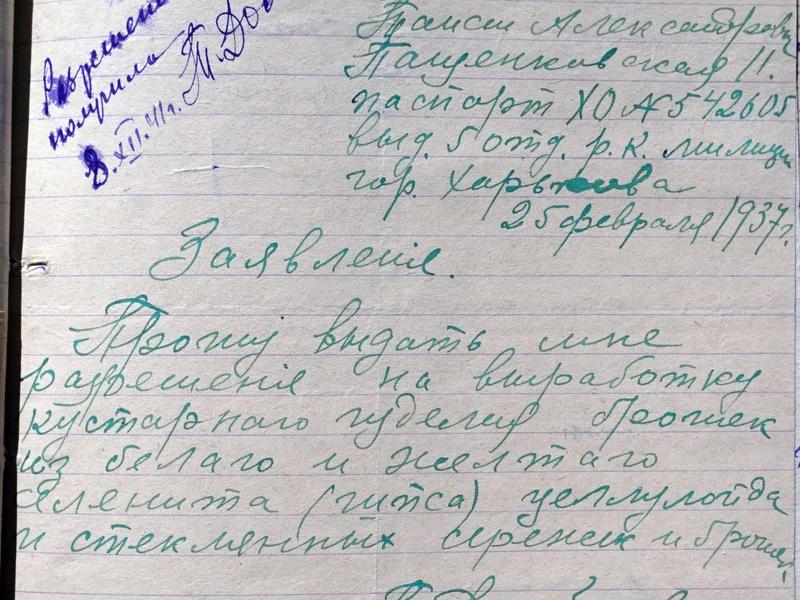 Разрешение
получила
8.XII.41г.
Таисии Александровн
Пащенковская 11.
паспорт ХО № 542605
выд. 5 отд. р.к. милиции
гор. Харькова
25 февраля 1937 г.
Заявленіе.
Прошу выдать мне
разрешеніе на выработку
кустарнаго изделия брошек
из белаго и желтаго
селенита (гипса) целлулоида
и стеклянных сережек и брошек